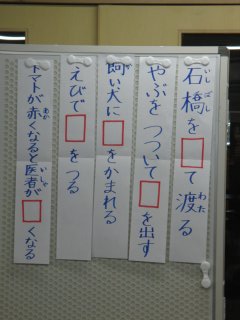 石橋を□て渡る
やぶをつついて□を出す
飼い犬に□をかまれる
えびで□をつる
トマトが赤くなると医者が□くなる